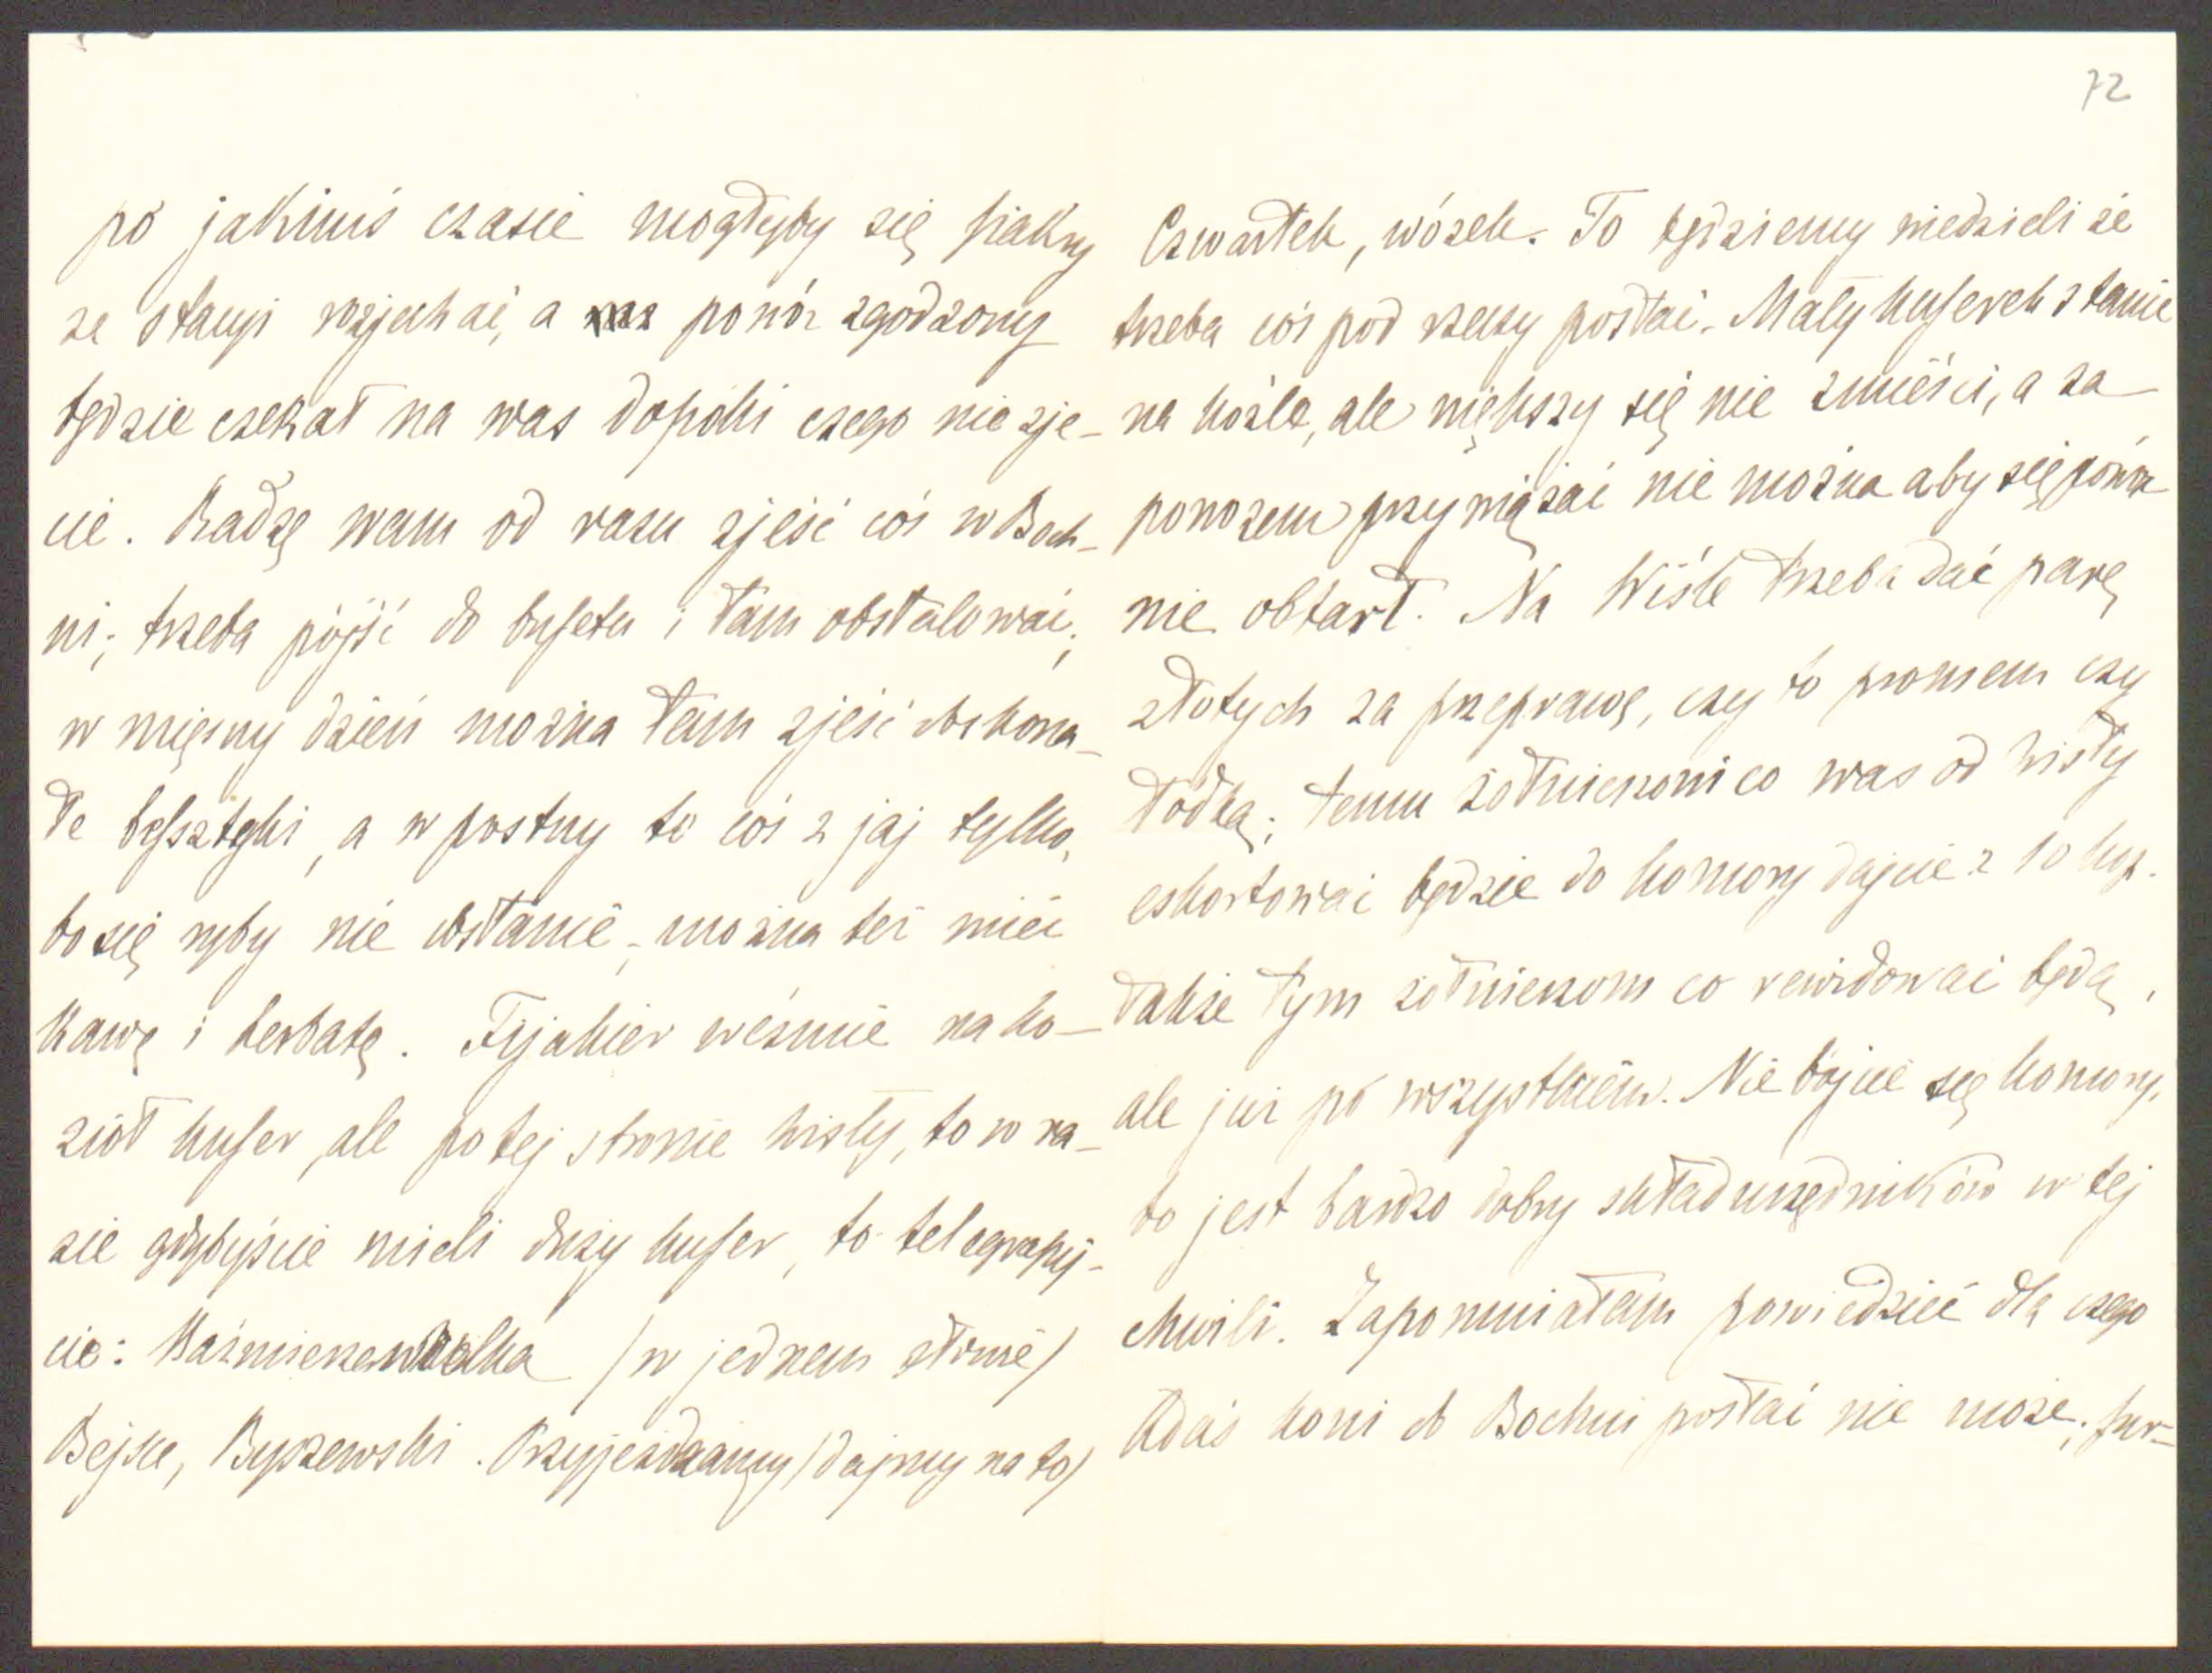 72
po jakimś czasie mogłyby się fiakry
ze stacyi rozjechać, a powóz zgodzony
będzie czekał na was dopóki czego nie zje-
cie. Radzę wam od razu zjeść coś w Boch-
ni; trzeba pójść do bufetu i tam obstalować;
w mięsny dzień można tam zjeść doskona-
łe befsztyki, a w postny to coś z jaj tylko,
bo się ryby nie dostanie, można też mieć
kawę i herbatę. Fijakier weźmie na ko-
zioł kufer, ale po tej stronie Wisły, to w ra-
zie gdybyście mieli duży kufer, to telegrafuj-
cie: Kaźmierzawielka /w jednem słowie/
Bejsce, Byszewski. Przyjeżdżamy /dajmy na to/
Czwartek, wózek. To będziemy wiedzieli że
trzeba coś pod rzeczy posłać. Mały kuferek stanie
na koźle, ale większy się nie zmieści, a za
powozem przywiązać nie można aby się powóz
nie obtarł. Na Wiśle trzeba dać parę
złotych za przeprawę, czy to promem czy
łódką; temu żołnierzowi co was od Wisły
eskortować będzie do komory dajcie z 10 kop.
także tym żołnierzom co rewidować będą,
ale już po wszystkiem. Nie bójcie się komory,
bo jest bardzo dobry skład urzędników w tej
chwili. Zapomniałam powiedzieć dla czego
Adaś koni do Bochni posłać nie może; fur-